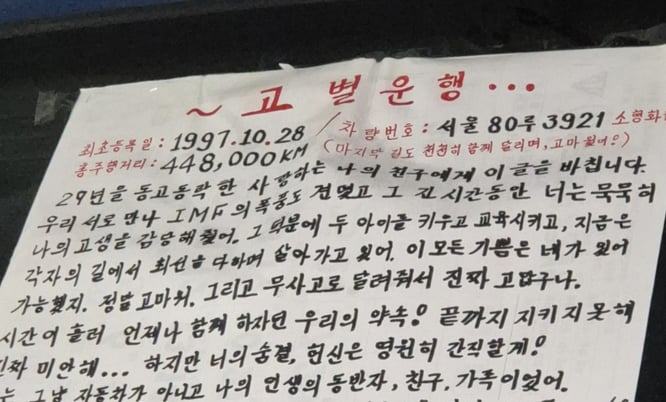 ~ 고별운행...
최초등록일: 1997.10.28 / 차량번호: 서울 80루 3921 소형화
총주행거리: 448,000KM (마지막 길도 천천히 함께 달리며, 고마웠어?)
29년을 동고동락한 사랑하는 나의 친구에게 이 글을 바칩니다.
우리 서로 만나 IMF의 폭풍도 견뎠고 그 긴 시간동안 너는 묵묵히
나의 고생을 감당해줬어. 그 덕분에 두 아이를 키우고 교육시키고, 지금은
각자의 길에서 최선을 다하며 살아가고 있어. 이 모든 기쁨은 네가 있어
가능했지. 정말 고마워. 그리고 무사고로 달려줘서 진짜 고맙구나.
시간이 흘러 언제나 함께 하자던 우리의 약속! 끝까지 지키지 못해
진짜 미안해... 하지만 너의 숨결, 헌신은 영원히 간직할게!
는 그냥 자동차가 아니고 나의 인생의 동반자, 친구, 가족이었어.